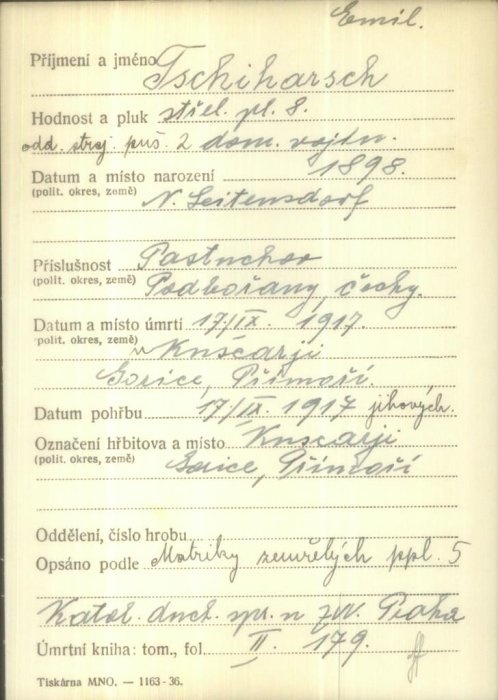 Emil.
Příjmení a jméno Tschiharsch
Hodnost a pluk střel. pl. 8.
odd. stroj. puš. 2 dom. vojtn.
Datum a místo narození 1898.
(polit. okres, země) N. Leitensdorf
Příslušnost Pastuchov
(polit. okres, země) Podbořany, čechy.
Datum a místo úmrtí 17./IX. 1917.
(polit. okres, země) u Knścarji
Gorice, Přímoří.
Datum pohřbu 17/IX. 1917 jihových.
Označení hřbitova a místo Knścarji
(polit. okres, země) Gorice, Přímoří
Oddělení, číslo hrobu
Opsáno podle Matriky zemřelých ppl. 5
Katol. duch. spr. n zv. Praha
Úmrtní kniha: tom., fol. II. 179.
Tiskárna MNO. — 1163-36.